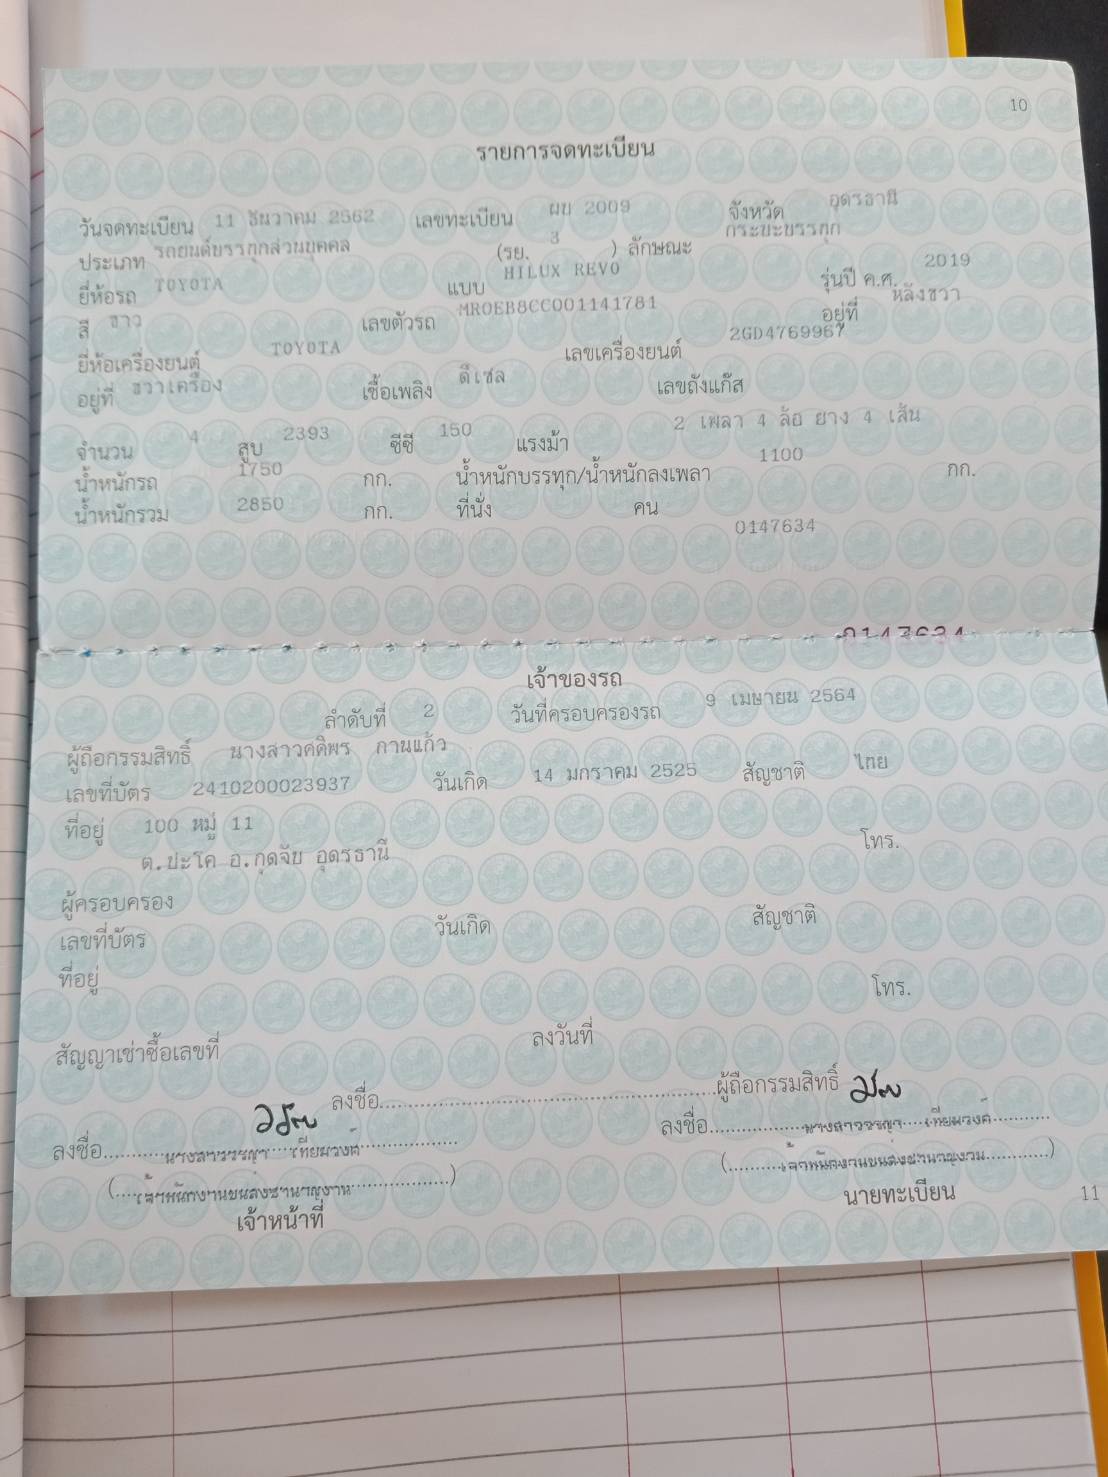 10
รายการจดทะเบียน
วันจดทะเบียน 11 ธันวาคม 2562 เลขทะเบียน ผบ 2009 จังหวัด อุดรธานี
ประเภท รถยนต์บรรทุกส่วนบุคคล (รย. 3 ) ลักษณะ กระบะบรรทุก
ยี่ห้อรถ TOYOTA แบบ HILUX REVO รุ่นปี ค.ศ. 2019
สี ขาว เลขตัวรถ MR0EB8CC001141781 อยู่ที่ หลังขวา
ยี่ห้อเครื่องยนต์ TOYOTA เลขเครื่องยนต์ 2GD4769967
อยู่ที่ ขวาเครื่อง เชื้อเพลิง ดีเซล เลขถังแก๊ส
จำนวน 4 สูบ 2393 ซีซี 150 แรงม้า 2 เพลา 4 ล้อ ยาง 4 เส้น
น้ำหนักรถ 1750 กก. น้ำหนักบรรทุก/น้ำหนักลงเพลา 1100 กก.
น้ำหนักรวม 2850 กก. ที่นั่ง คน
0147634
0147634
เจ้าของรถ
ลำดับที่ 2 วันที่ครอบครองรถ 9 เมษายน 2564
ผู้ถือกรรมสิทธิ์ นางสาวคติพร กานแก้ว
เลขที่บัตร 2410200023937 วันเกิด 14 มกราคม 2525 สัญชาติ ไทย
ที่อยู่ 100 หมู่ 11
ต.ปะโค อ.กุดจับ อุดรธานี โทร.
ผู้ครอบครอง
เลขที่บัตร วันเกิด สัญชาติ
ที่อยู่
โทร.
สัญญาเช่าซื้อเลขที่ ลงวันที่
ลงชื่อ ผู้ถือกรรมสิทธิ์
ลงชื่อ นางสาววรรญา เทียมวงค์ ลงชื่อ นางสาววรรญา เทียมวงค์
(เจ้าพนักงานขนส่งชำนาญงาน) (เจ้าพนักงานขนส่งชำนาญงาน)
เจ้าหน้าที่ นายทะเบียน
11